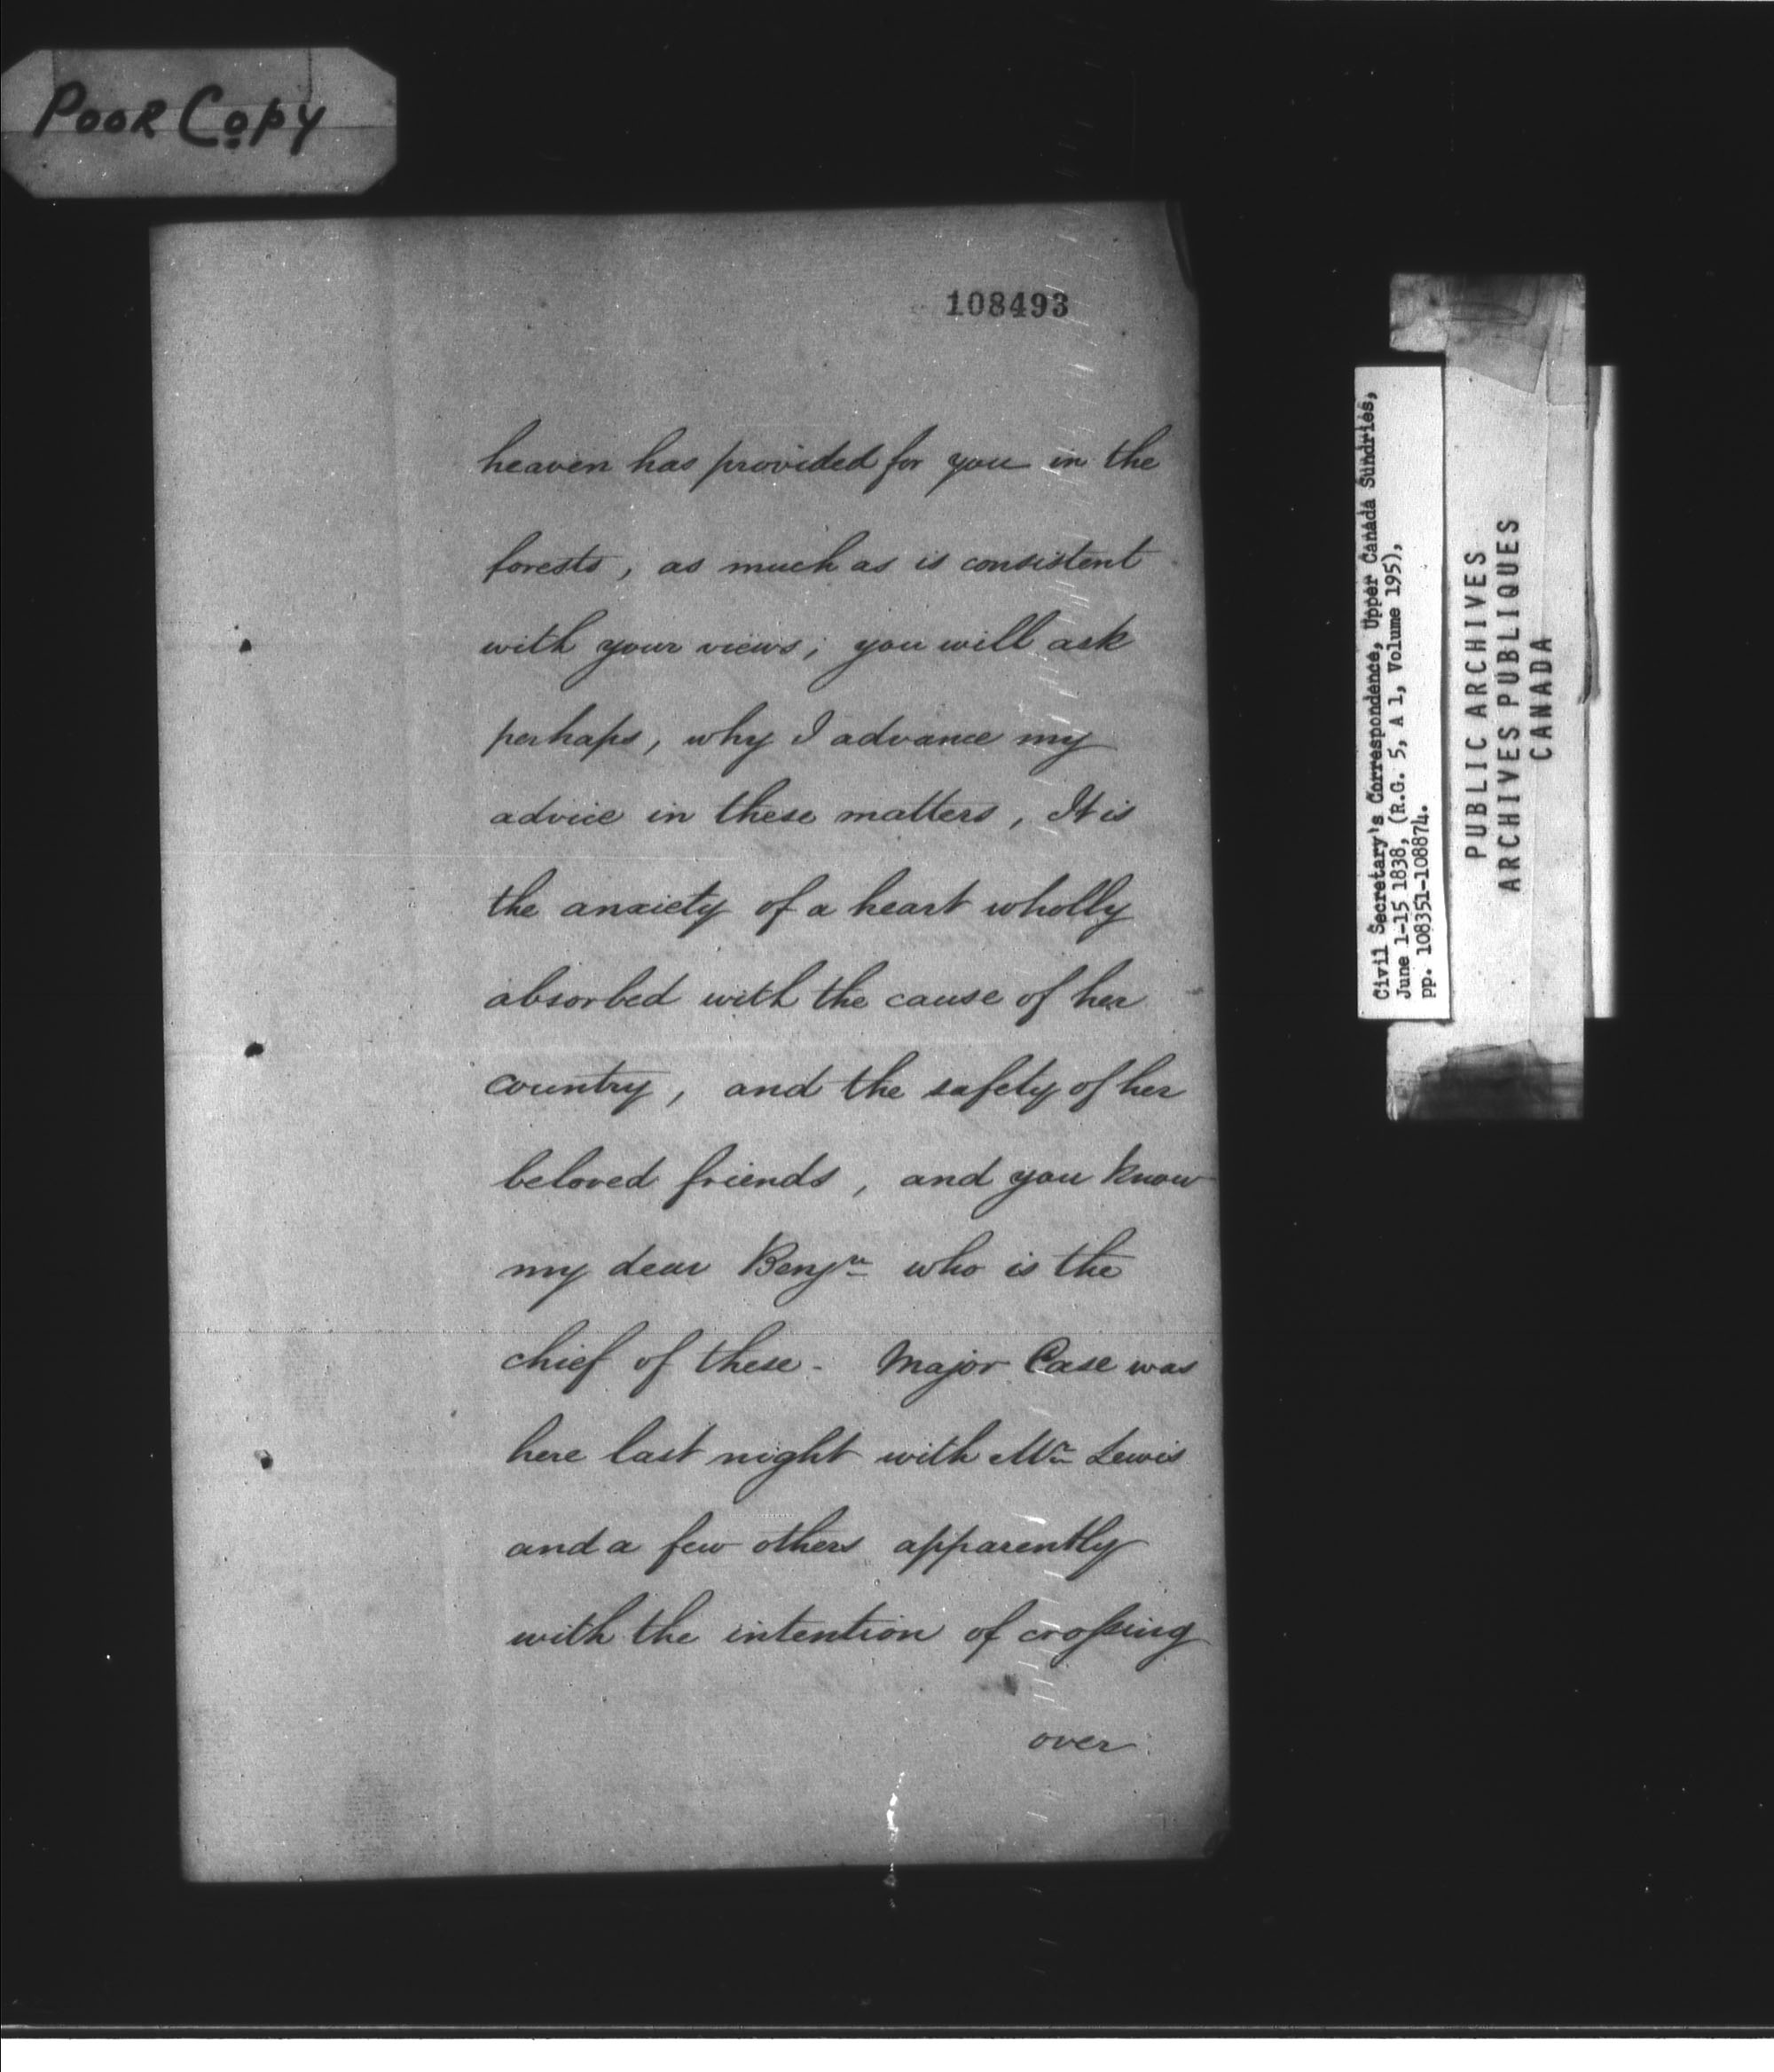 POOR COPY
108493
heaven has provided for you in the
forests, as much as is consistent
with your views; you will ask
perhaps, why I advance my
advice in these matters, It is
the anxiety of a heart wholly
absorbed with the cause of her
country, and the safety of her
beloved friends, and you know
my dear Benjn who is the
chief of these - Major Case was
here last night with Mr Lewis
and a few others apparently
with the intention of crossing
over
Civil Secretary's Correspondence, Upper Canada Sundries,
June 1-15 1838, (R.G. 5, A 1, Volume 195),
pp. 108351-108874.
PUBLIC ARCHIVES
ARCHIVES PUBLIQUES
CANADA